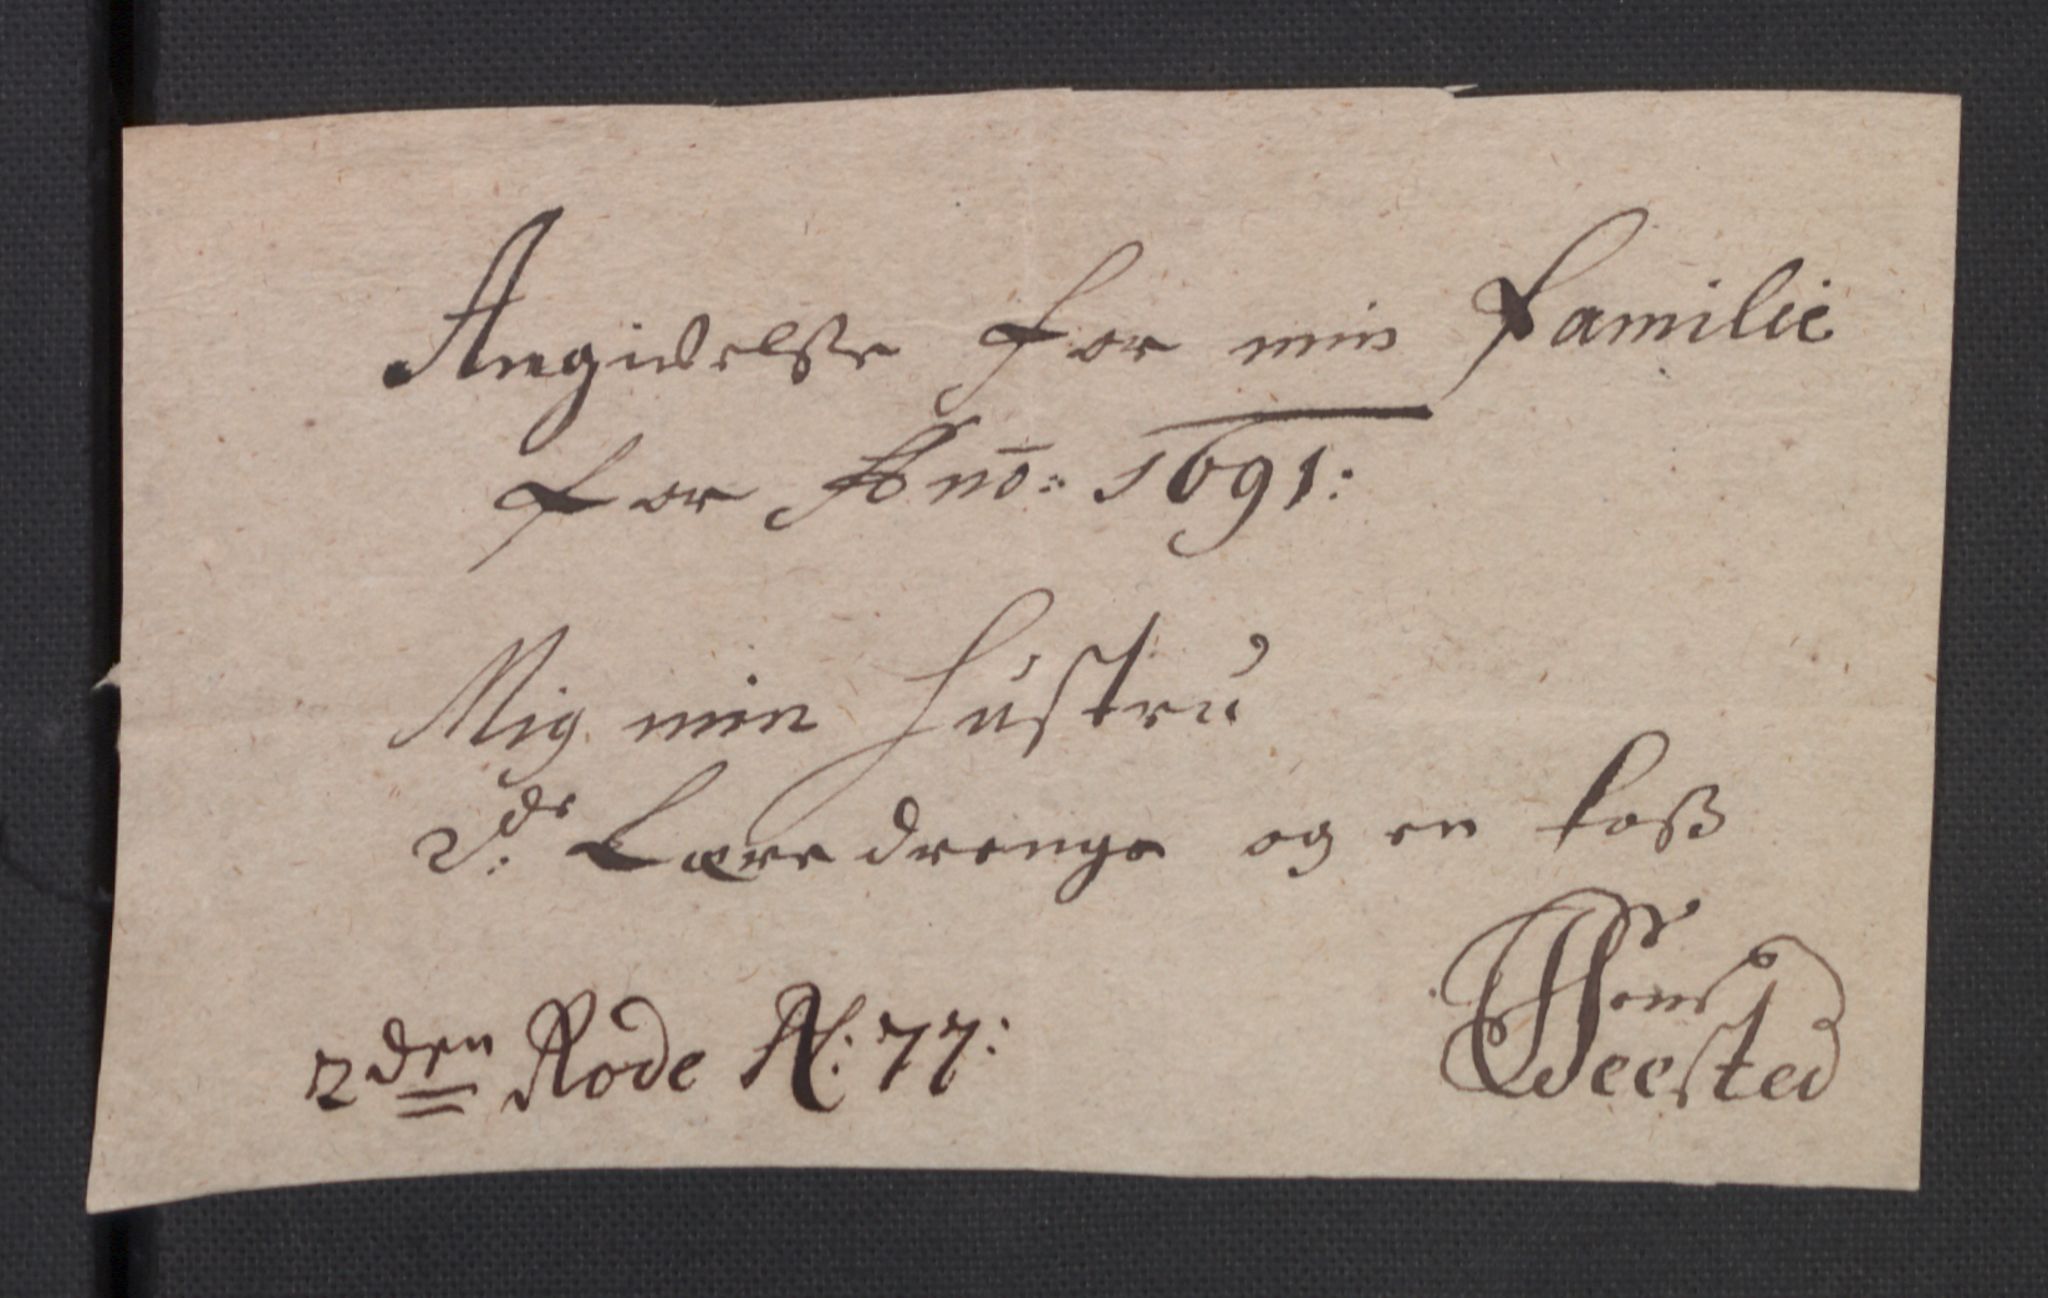 Angivelsse for min Familie
for Anō: 1691:
Mig min Hustru
2de: Læredrenge og en
2den Rode N: 77:
Hans
Weested